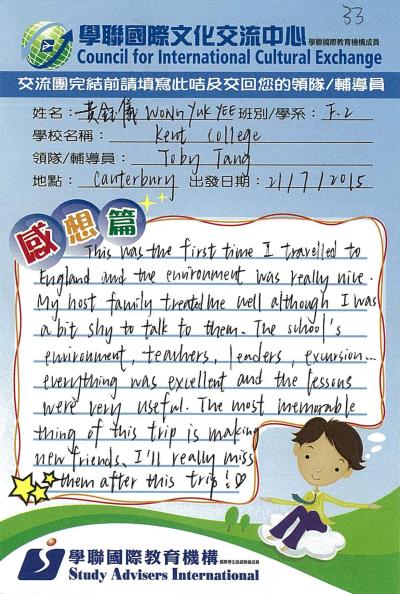 33
學聯國際文化交流中心 學聯國際教育機構成員
Council for International Cultural Exchange
交流團完結前請填寫此咭及交回您的領隊/輔導員
姓名：黃鈺儀 WONG YUK YEE 班別/學系：F.2
學校名稱：Kent College
領隊/輔導員：Toby Tang
地點：Canterbury 出發日期：21/7/2015
感想篇
This was the first time I travelled to
England and the environment was really nice.
My host family treated me well although I was
a bit shy to talk to them. The school's
environment, teachers, leaders, excursion...
everything was excellent and the lessons
were very useful. The most memorable
thing of this trip is making
new friends. I'll really miss
them after this trip! ♡
學聯國際教育機構
Study Advisers International